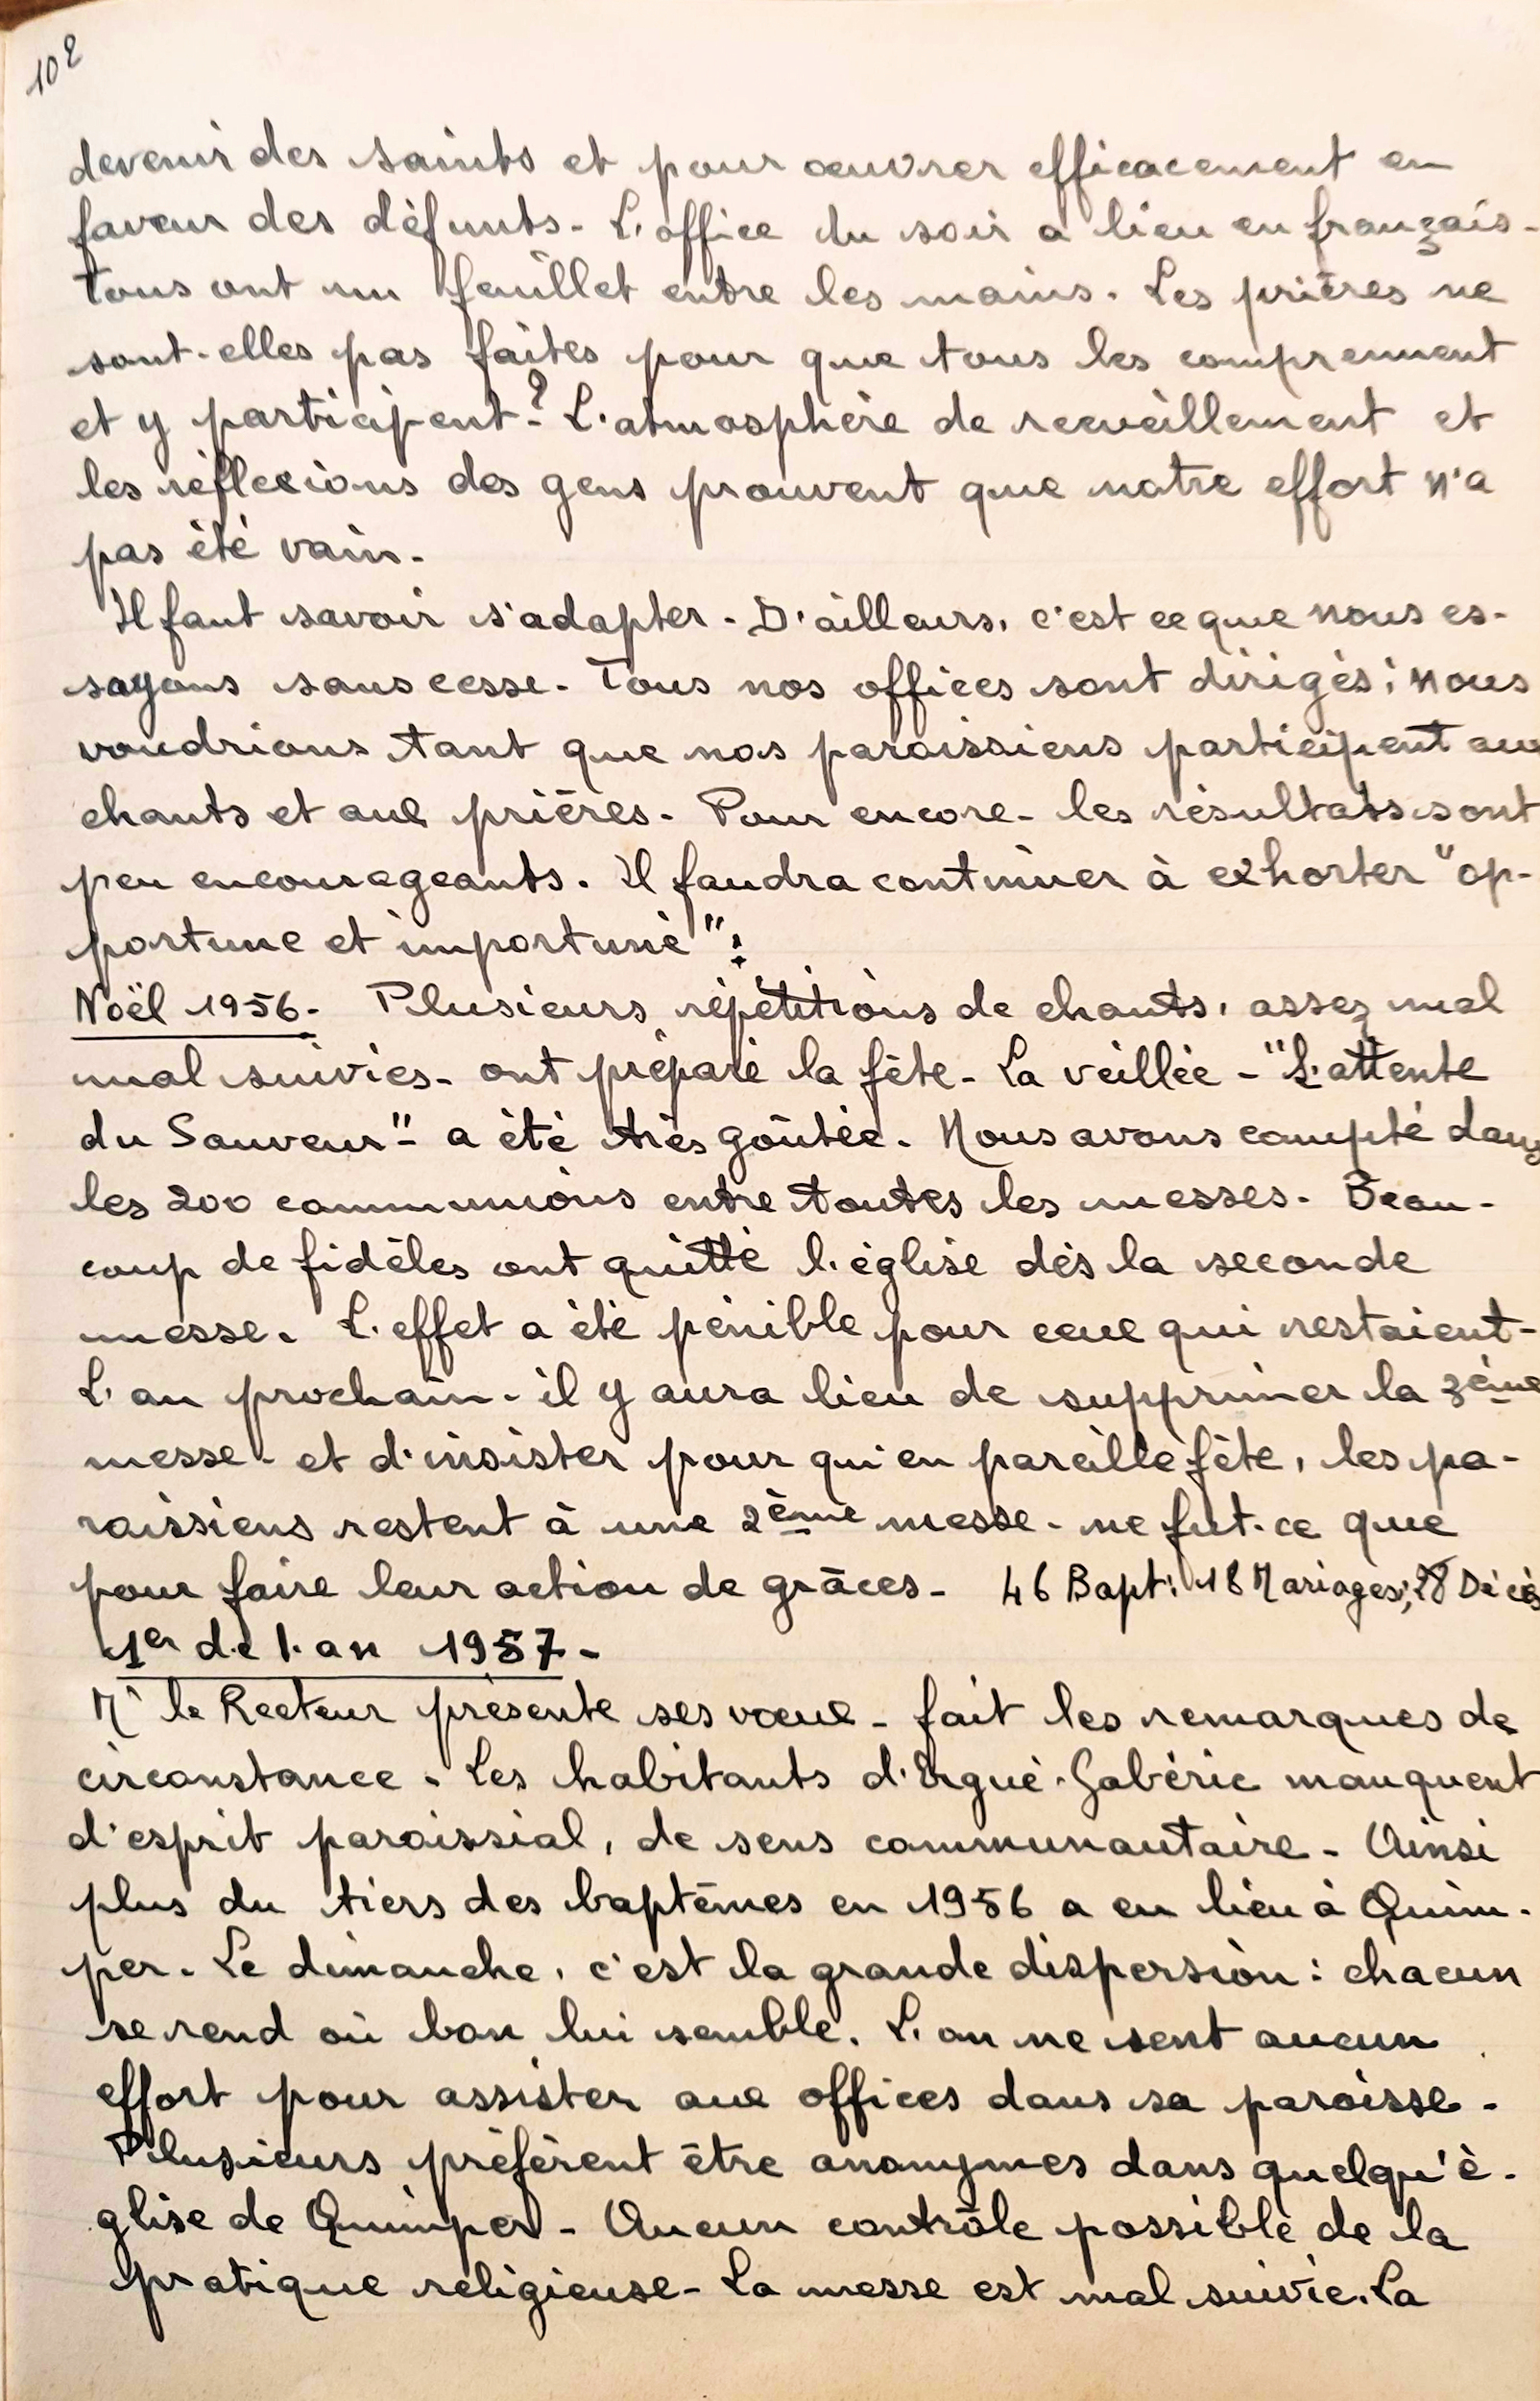 102
devenir des saints et pour œuvrer efficacement en
faveur des défunts - L'office du soir a lieu en français -
tous ont un feuillet entre les mains. Les prières ne
sont-elles pas faites pour que tous les comprennent
et y participent ? L'atmosphère de recueillement et
les réflexions des gens prouvent que notre effort n'a
pas été vain -
Il faut savoir s'adapter - D'ailleurs, c'est ce que nous es-
sayons sans cesse - Tous nos offices sont dirigés ; nous
voudrions tant que nos paroissiens participent aux
chants et aux prières - Pour encore - les résultats sont
peu encourageants. Il faudra continuer à exhorter "op-
portune et importune" :
Noël 1956 - Plusieurs répétitions de chants, assez mal
mal suivies - ont préparé la fête - La veillée - "L'attente
du Sauveur" - a été très goûtée. Nous avons compté dans
les 200 communions entre toutes les messes - Beau-
coup de fidèles ont quitté l'église dès la seconde
messe. L'effet a été pénible pour ceux qui restaient -
L'an prochain - il y aura lieu de supprimer la 3ème
messe - et d'insister pour qu'en pareille fête, les pa-
roissiens restent à une 2ème messe - ne fut-ce que
pour faire leur action de grâces - 46 Bapt; 18 Mariages; 28 Décès
1er de l'an 1957 -
Mr le Recteur présente ses vœux - fait les remarques de
circonstance - Les habitants d'Ergué-Gabéric manquent
d'esprit paroissial, de sens communautaire - Ainsi
plus du tiers des baptêmes en 1956 a eu lieu à Quim-
per - Le dimanche, c'est la grande dispersion : chacun
se rend où bon lui semble. L'on ne sent aucun
effort pour assister aux offices dans sa paroisse -
Plusieurs préfèrent être anonymes dans quelqu'é-
glise de Quimper - Aucun contrôle possible de la
pratique religieuse - La messe est mal suivie. La